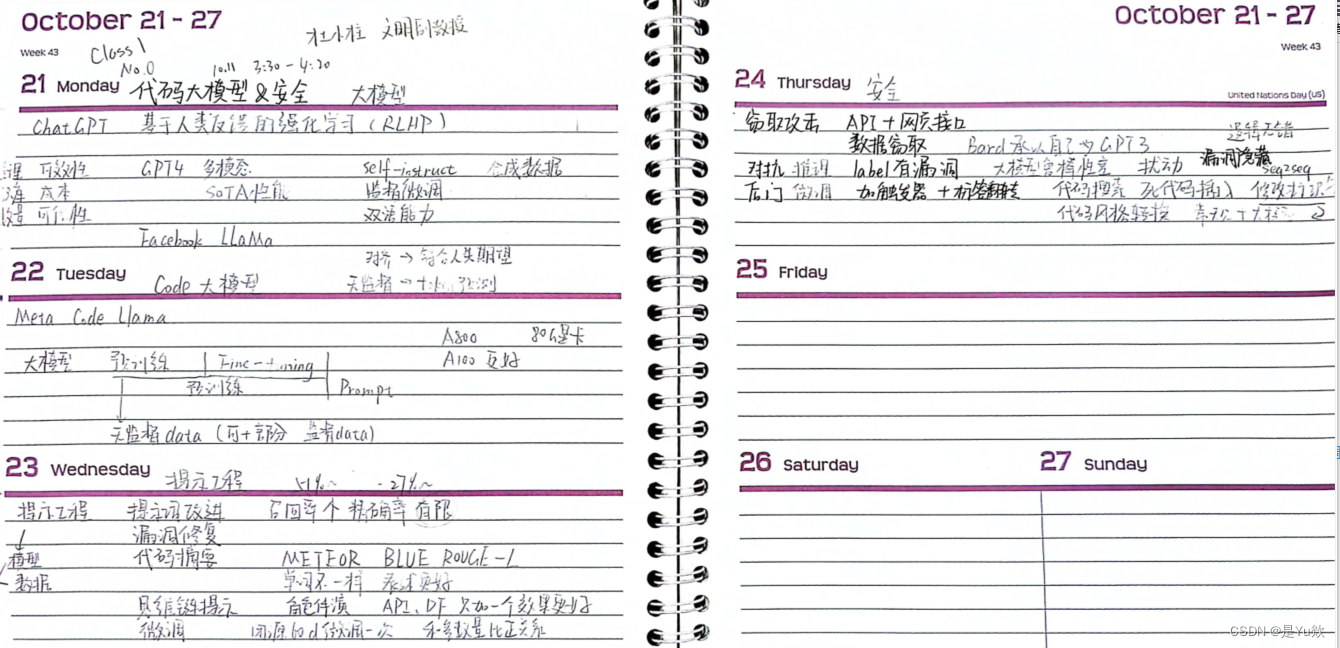 October 21 - 27
Week 43 Class 1
No.0 10.11 3:30-4:20
21 Monday 代码大模型&安全 大模型
ChatGPT 基于人类反馈的强化学习(RLHP)
可效性 GPT4 多模态 self-instruct 合成数据
成本 SoTA性能 监督微调
可信性 双语能力
Facebook LLaMa
对齐 → 符合人类期望
22 Tuesday Code 大模型 无监督 → token预测
Meta Code Llama
A800 80G显卡
大模型 预训练 Fine-tuning A100 更好
预训练 Prompt
无监督data (可+部分 监督data)
23 Wednesday 提示工程 51%~ -27%~
提示工程 提示词改进 召回率个 精确率 有限
漏洞修复
模型 代码摘要 METEOR BLUE ROUGE-L
数据 学习不一样 表述更好
思维链提示 角色扮演 API、DF 只加一个效果更好
微调 同源的d微调一次 和参数量比正关系
October 21 - 27
Week 43
24 Thursday 安全
United Nations Day (US)
窃取攻击 API+网页接口 逻辑无错
数据窃取 Bard承认自己 GPT3 漏洞隐藏
对抗 推理 label有漏洞 大模型鲁棒性差 扰动 seq2seq
后门 微调 加触发器+标签翻转 代码搜索 死代码插入
代码风格转换
25 Friday
26 Saturday
27 Sunday
CSDN @是Yu欸